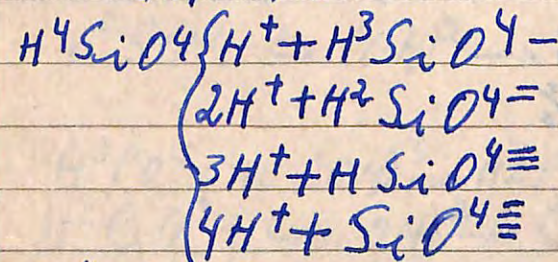 H⁴SiO4 { H⁺ + H³SiO⁴−
2H⁺ + H²SiO4=
3H⁺ + HSiO⁴≡
4H⁺ + SiO⁴≣